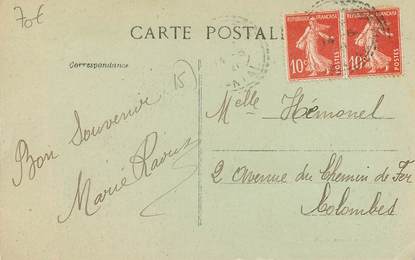 70€
CARTE POSTALE
Correspondance
15
REPUBLIQUE FRANÇAISE
10c
POSTES
REPUBLIQUE FRANÇAISE
10c
POSTES
Bon Souvenir
Marie
Melle Hémonel
2 Avenue du Chemin de Fer
Colombes